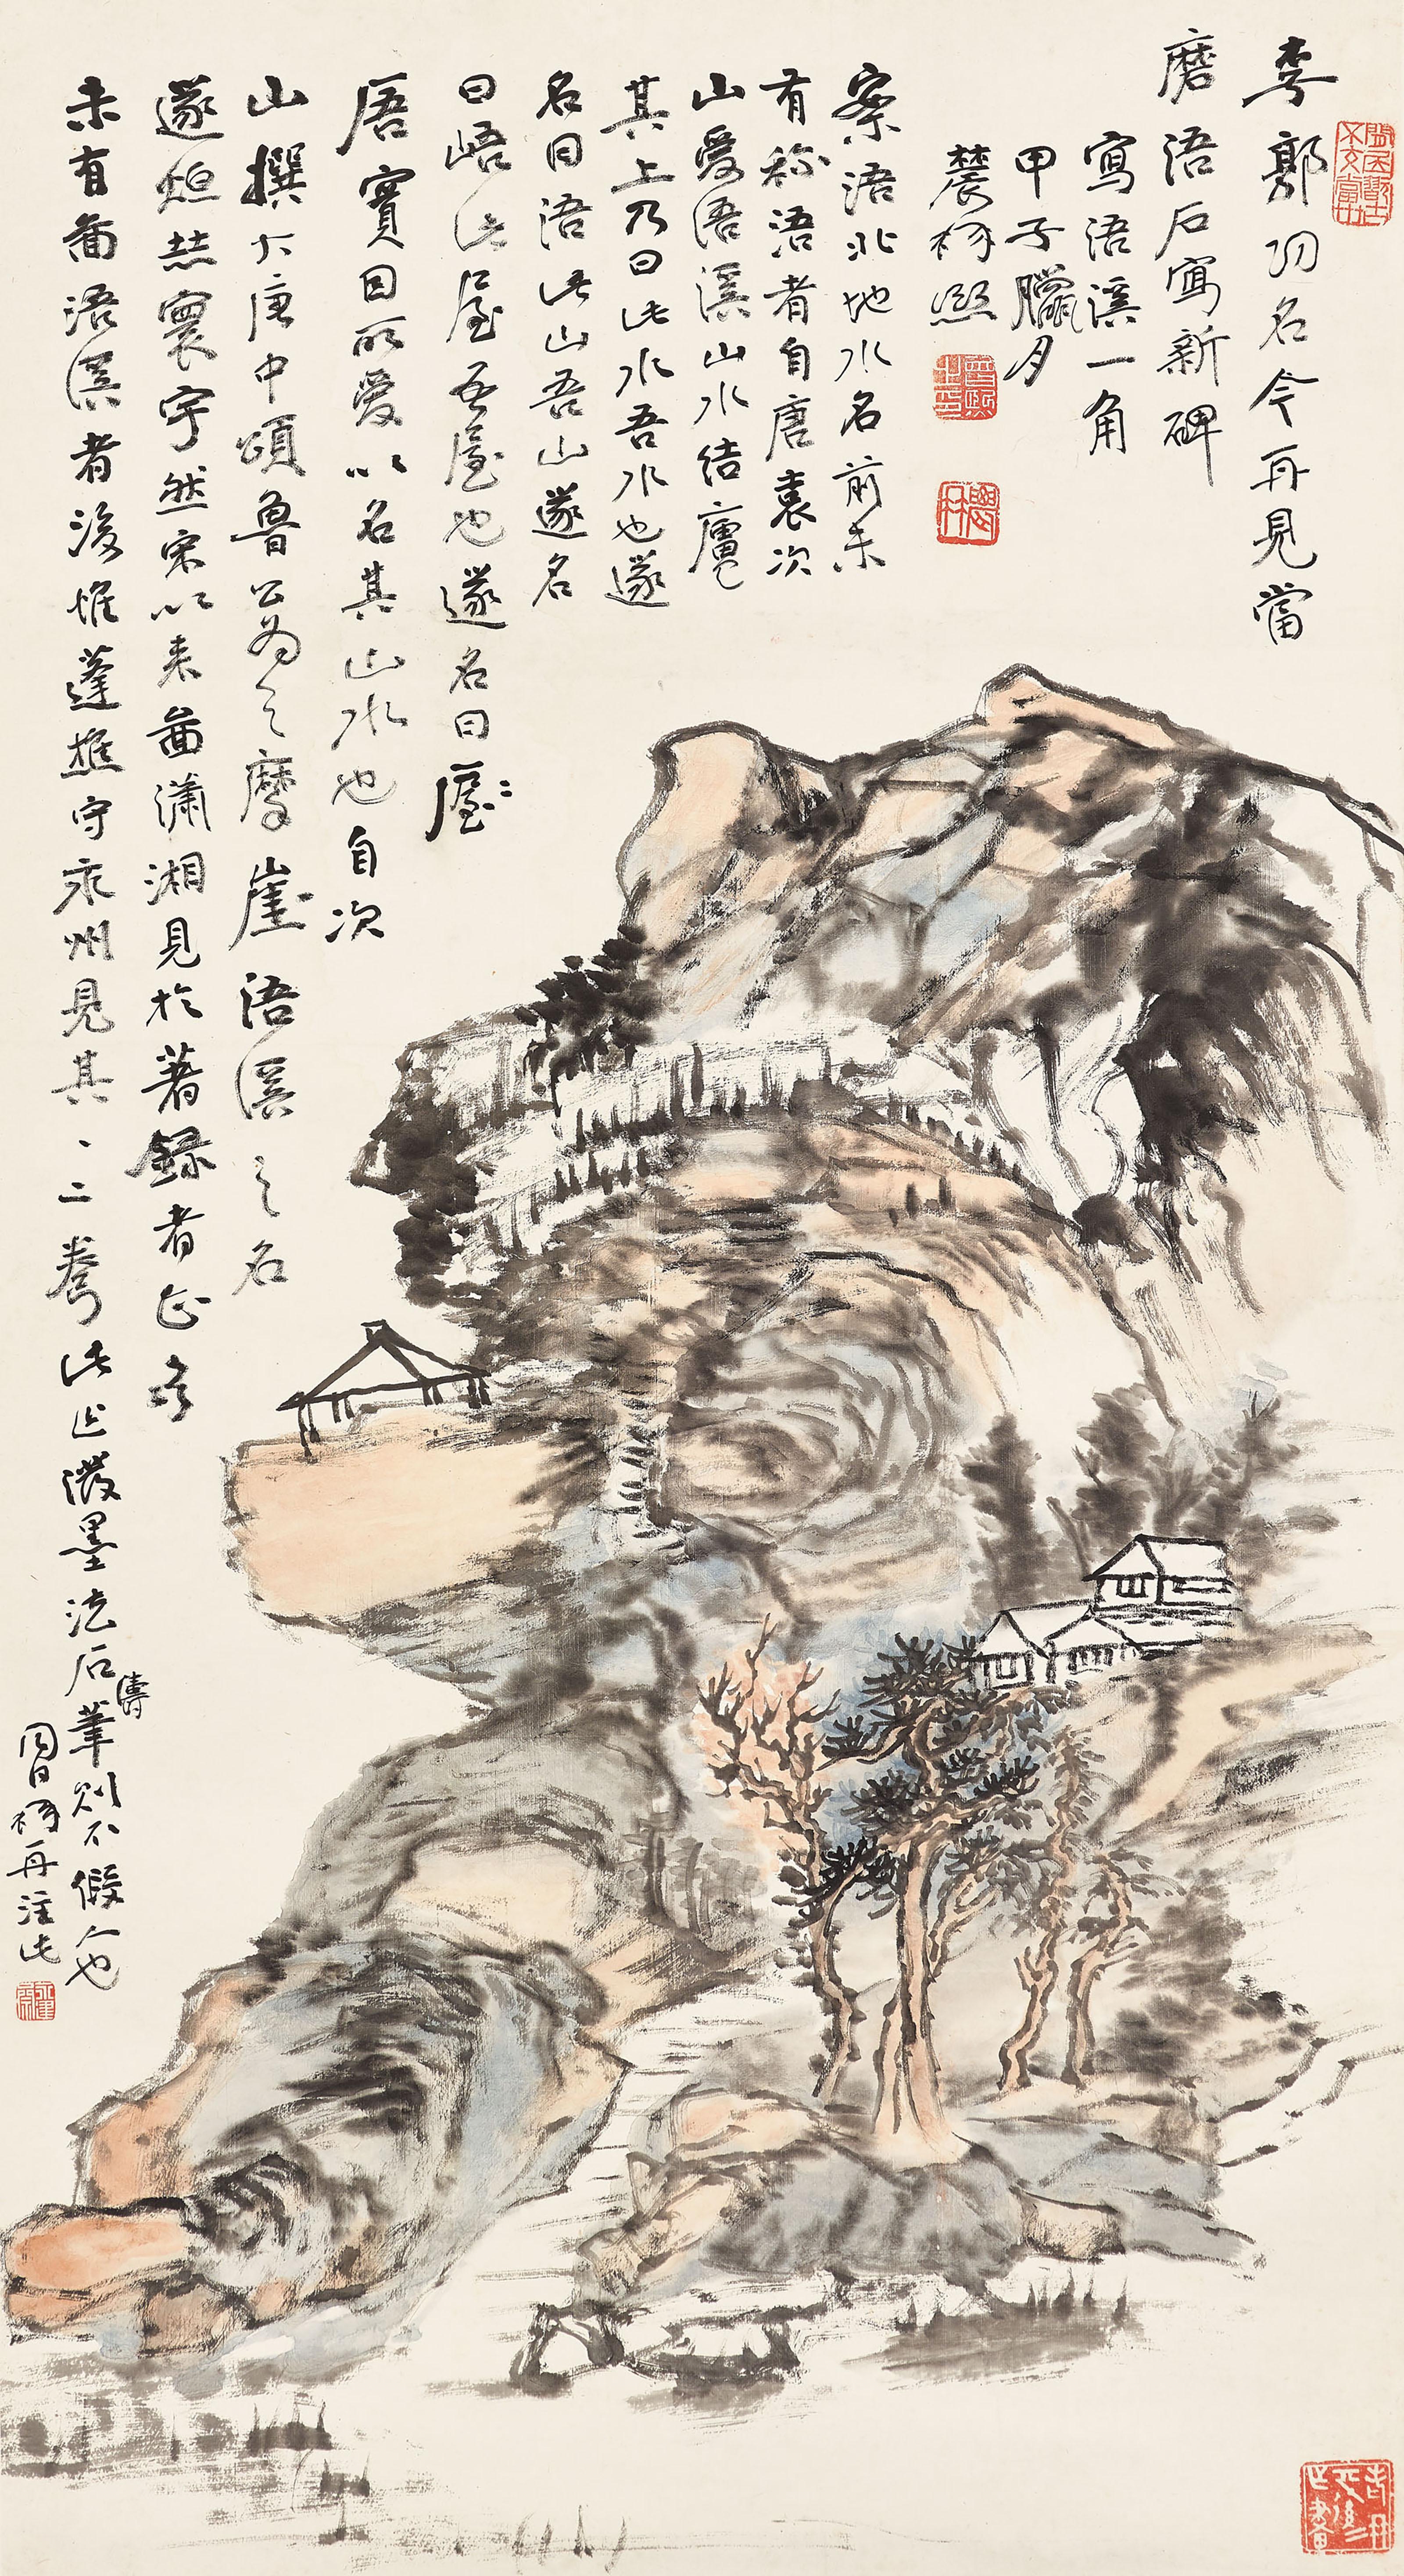 李郭功名今再見當
磨浯石寫新碑
寫浯溪一角
甲子臘月
農髯熙
案浯非地水名前未
有称浯者自唐袁次
山愛浯溪山水結廬
其上乃曰此水吾水也遂
名曰浯此山吾山遂名
曰峿此屋吾屋也遂名曰
𢈪實目所愛以名其山水也自次
山撰大唐中頌魯公為之摩崖浯溪之名
遂烜赫寰宇然宋以来啚瀟湘見於著錄者正多
未有啚浯溪者後惟蓬樵守永州見其一二卷此作潑墨法石濤筆則不假人也
同日髯再注此
曾熙之印
農髯